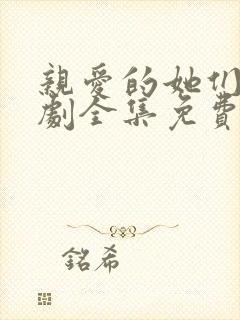 親愛的她们
劇全集免費
銘希